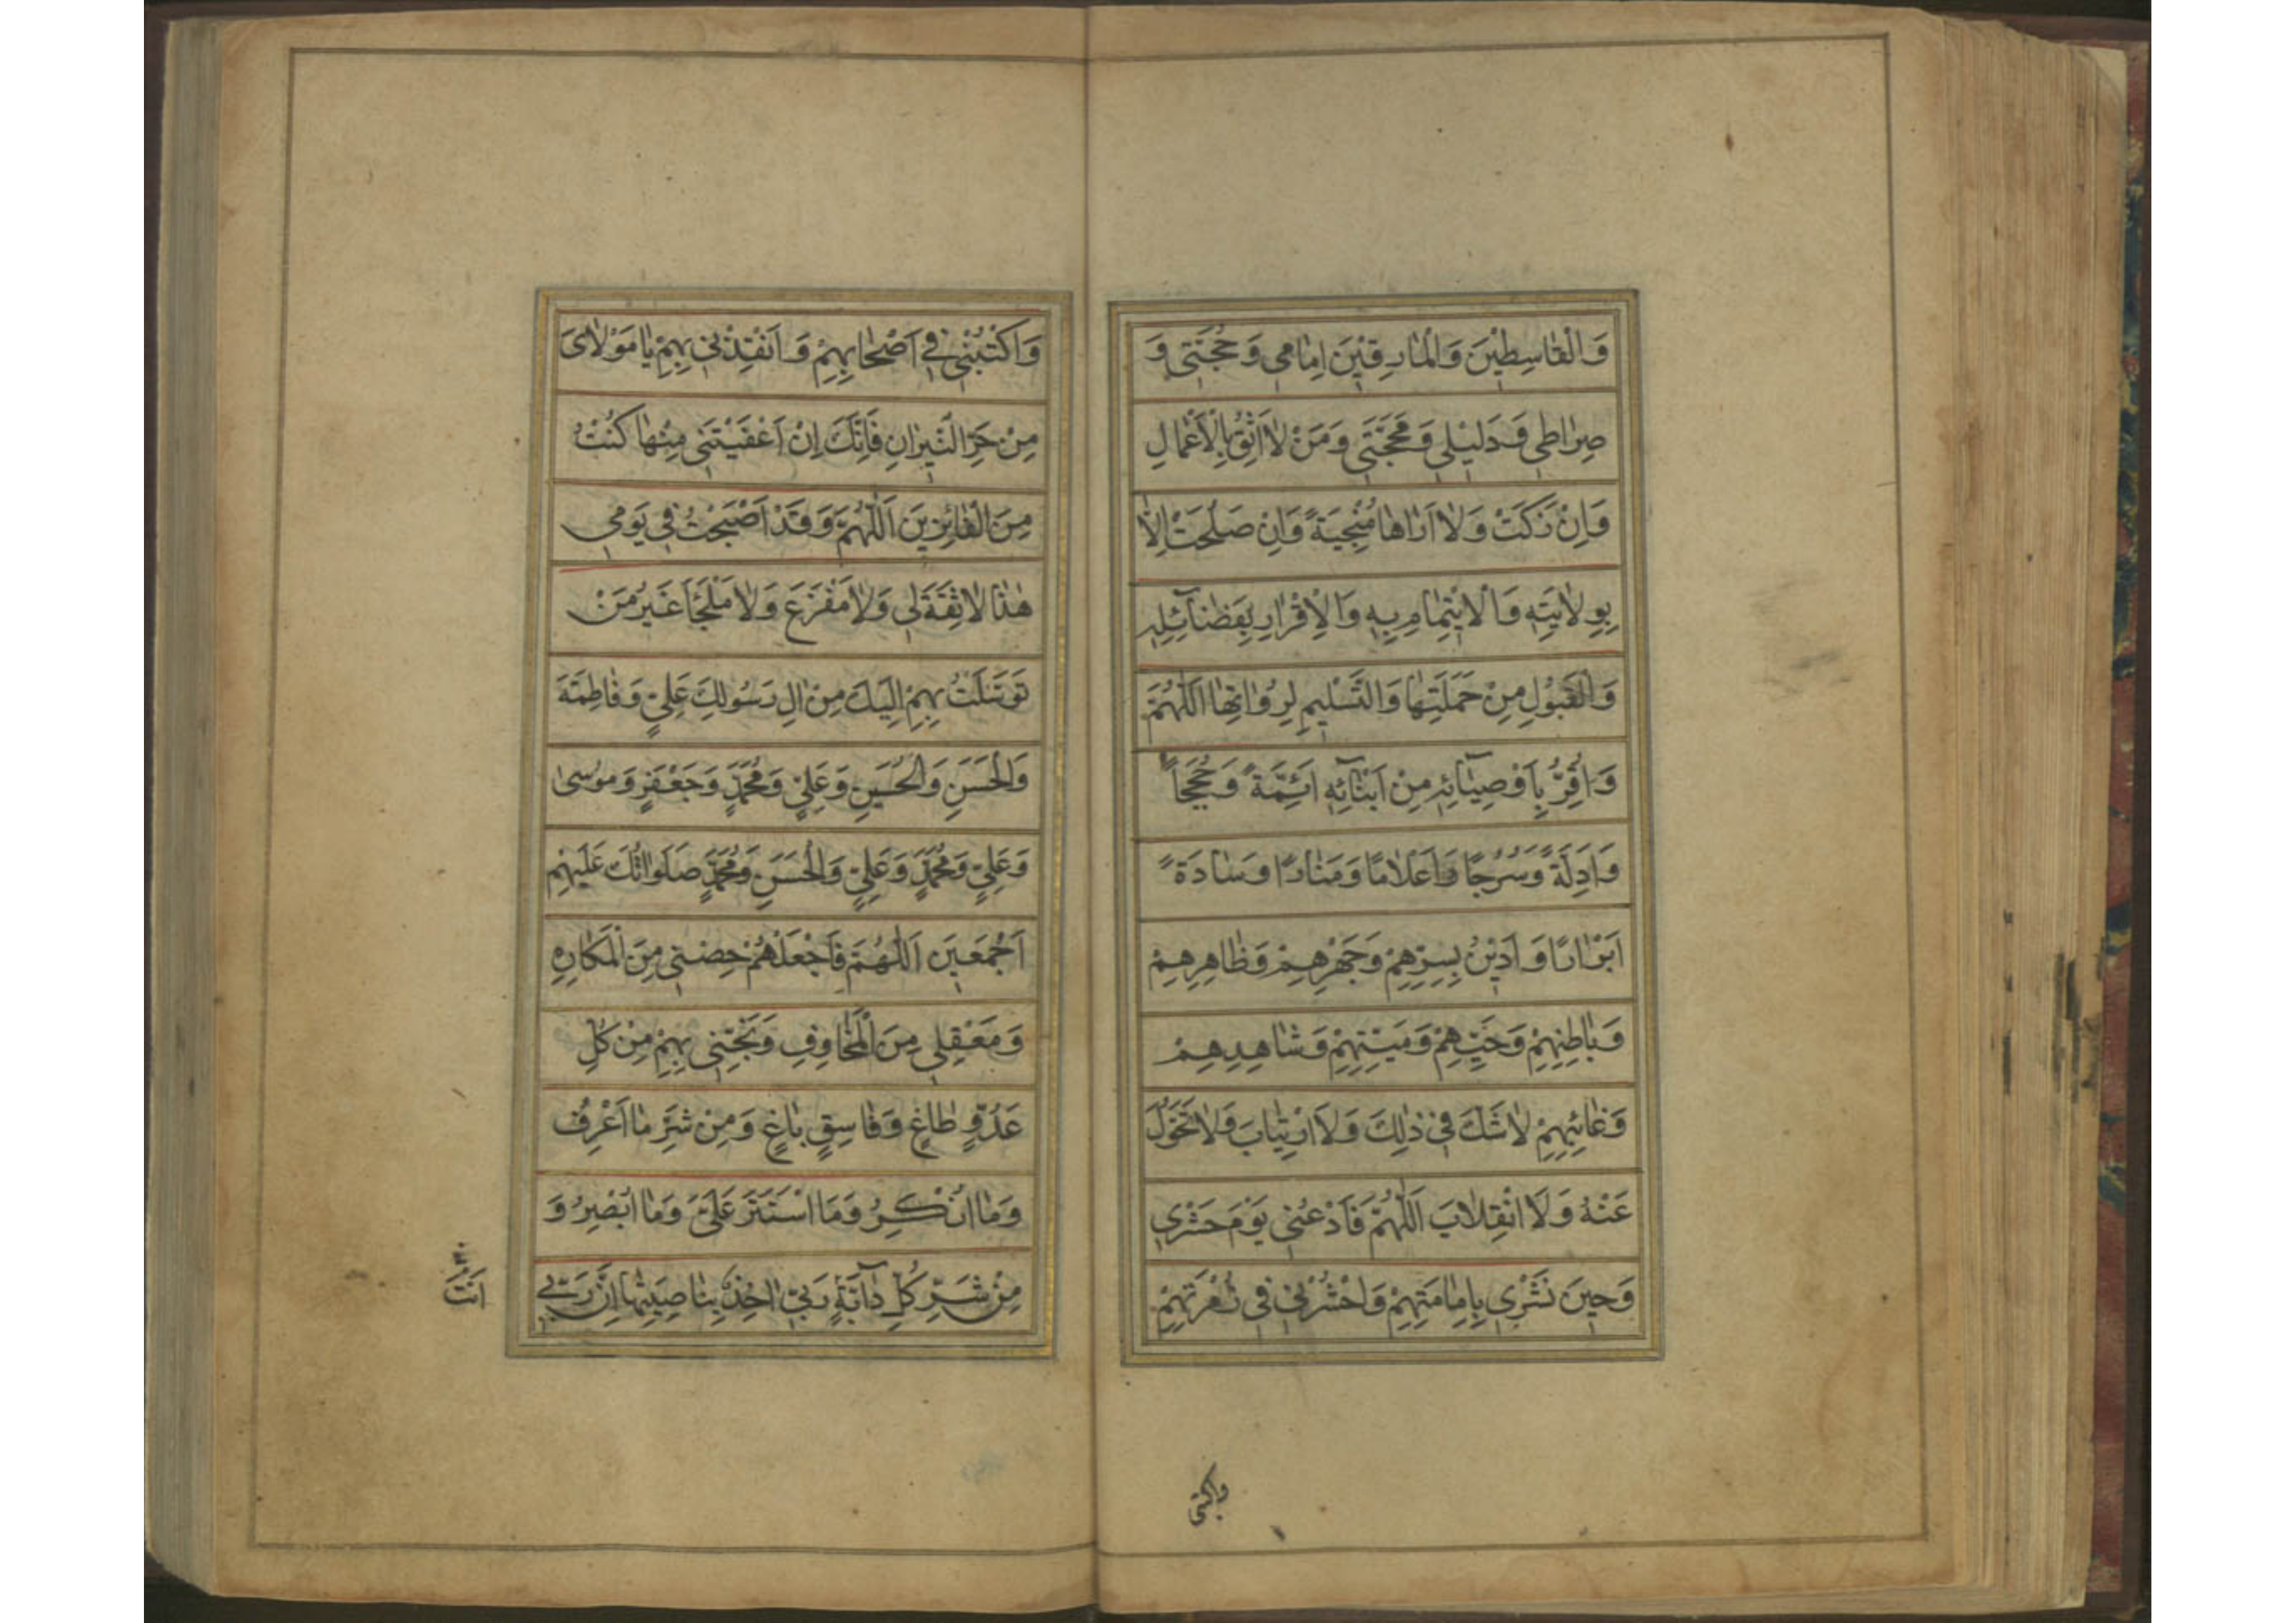 وَالْقٰاسِطِيْنَ وَالْمٰارِقِيْنَ اِمٰامِى وَحُجَّتِى وَ
صِرٰاطِى وَدَلِيْلِى وَمَحَجَّتِى وَمَنْ لٰا اَثِقُ بِالْاَعْمٰالِ
وَاِنْ زَكَتْ وَلٰا اَرٰاهٰا مُنْجِيَةً وَاِنْ صَلُحَتْ اِلّٰا
بِوِلٰايَتِهِ وَالْاِيْتِمٰامِ بِهِ وَالْاِقْرٰارِ بِفَضٰآئِلِهِ
وَالْقَبُوْلِ مِنْ حَمَلَتِهٰا وَالتَّسْلِيمِ لِرُوٰاتِهٰا اَللّٰهُمَّ
وَاُقِرُّ بِاَوْصِيٰآئِهِ مِنْ اَبْنٰآئِهِ اَئِمَّةً وَحُجَجاً
وَاَدِلَّةً وَسُرُجًا وَاَعْلٰامًا وَمَنٰارًا وَسٰادَةً
اَبْرٰارًا وَاَدِيْنُ بِسِرِّهِمْ وَجَهْرِهِمْ وَظٰاهِرِهِمْ
وَبٰاطِنِهِمْ وَحَيِّهِمْ وَمَيِّتِهِمْ وَشٰاهِدِهِمْ
وَغٰائِبِهِمْ لٰا شَكَّ فِى ذٰلِكَ وَلَا ارْتِيٰابَ وَلٰا تَحَوُّلَ
عَنْهُ وَلَا انْقِلٰابَ اَللّٰهُمَّ فَادْعُنِى يَوْمَ حَشْرِى
وَحِينَ نَشْرِى بِاِمٰامَتِهِمْ وَاحْشُرْنِى فِى زُمْرَتِهِمْ
واكتبنى
وَاكْتُبْنِى فِى اَصْحٰابِهِمْ وَاَنْقِذْنِى بِهِمْ يٰا مَوْلٰاىَ
مِنْ حَرِّ النّٖيرٰانِ فَاِنَّكَ اِنْ اَعْفَيْتَنِى مِنْهٰا كُنْتُ
مِنَ الْفٰائِزِينَ اَللّٰهُمَّ وَقَدْ اَصْبَحْتُ فِى يَومِى
هٰذٰا لٰا ثِقَةَ لِى وَلٰا مَفْزَعَ وَلٰا مَلْجَأَ غَيْرُ مَنْ
تَوَسَّلْتُ بِهِمْ اِلَيْكَ مِنْ اٰلِ رَسُولِكَ عَلِيٍّ وَفٰاطِمَةَ
وَالْحَسَنِ وَالْحُسَيْنِ وَعَلِيٍّ وَمُحَمَّدٍ وَجَعْفَرٍ وَمُوسىٰ
وَعَلِيٍّ وَمُحَمَّدٍ وَعَلِيٍّ وَالْحَسَنِ وَمُحَمَّدٍ صَلَوٰاتُكَ عَلَيْهِمْ
اَجْمَعِينَ اَللّٰهُمَّ فَاجْعَلْهُمْ حِصْنِى مِنَ الْمَكٰارِهِ
وَمَعْقِلِى مِنَ الْمَخٰاوِفِ وَنَجِّنِى بِهِمْ مِنْ كُلِّ
عَدُوٍّ طٰاغٍ وَفٰاسِقٍ بٰاغٍ وَمِنْ شَرِّ مٰا اَعْرِفُ
وَمٰا اُنْكِرُ وَمَا اسْتَتَرَ عَلَيَّ وَمٰا اُبْصِرُ وَ
مِنْ شَرِّ كُلِّ دٰآبَّةٍ رَبّى اٰخِذٌ بِنٰاصِيَتِهٰا اِنَّ رَبّى
اَنْتَ